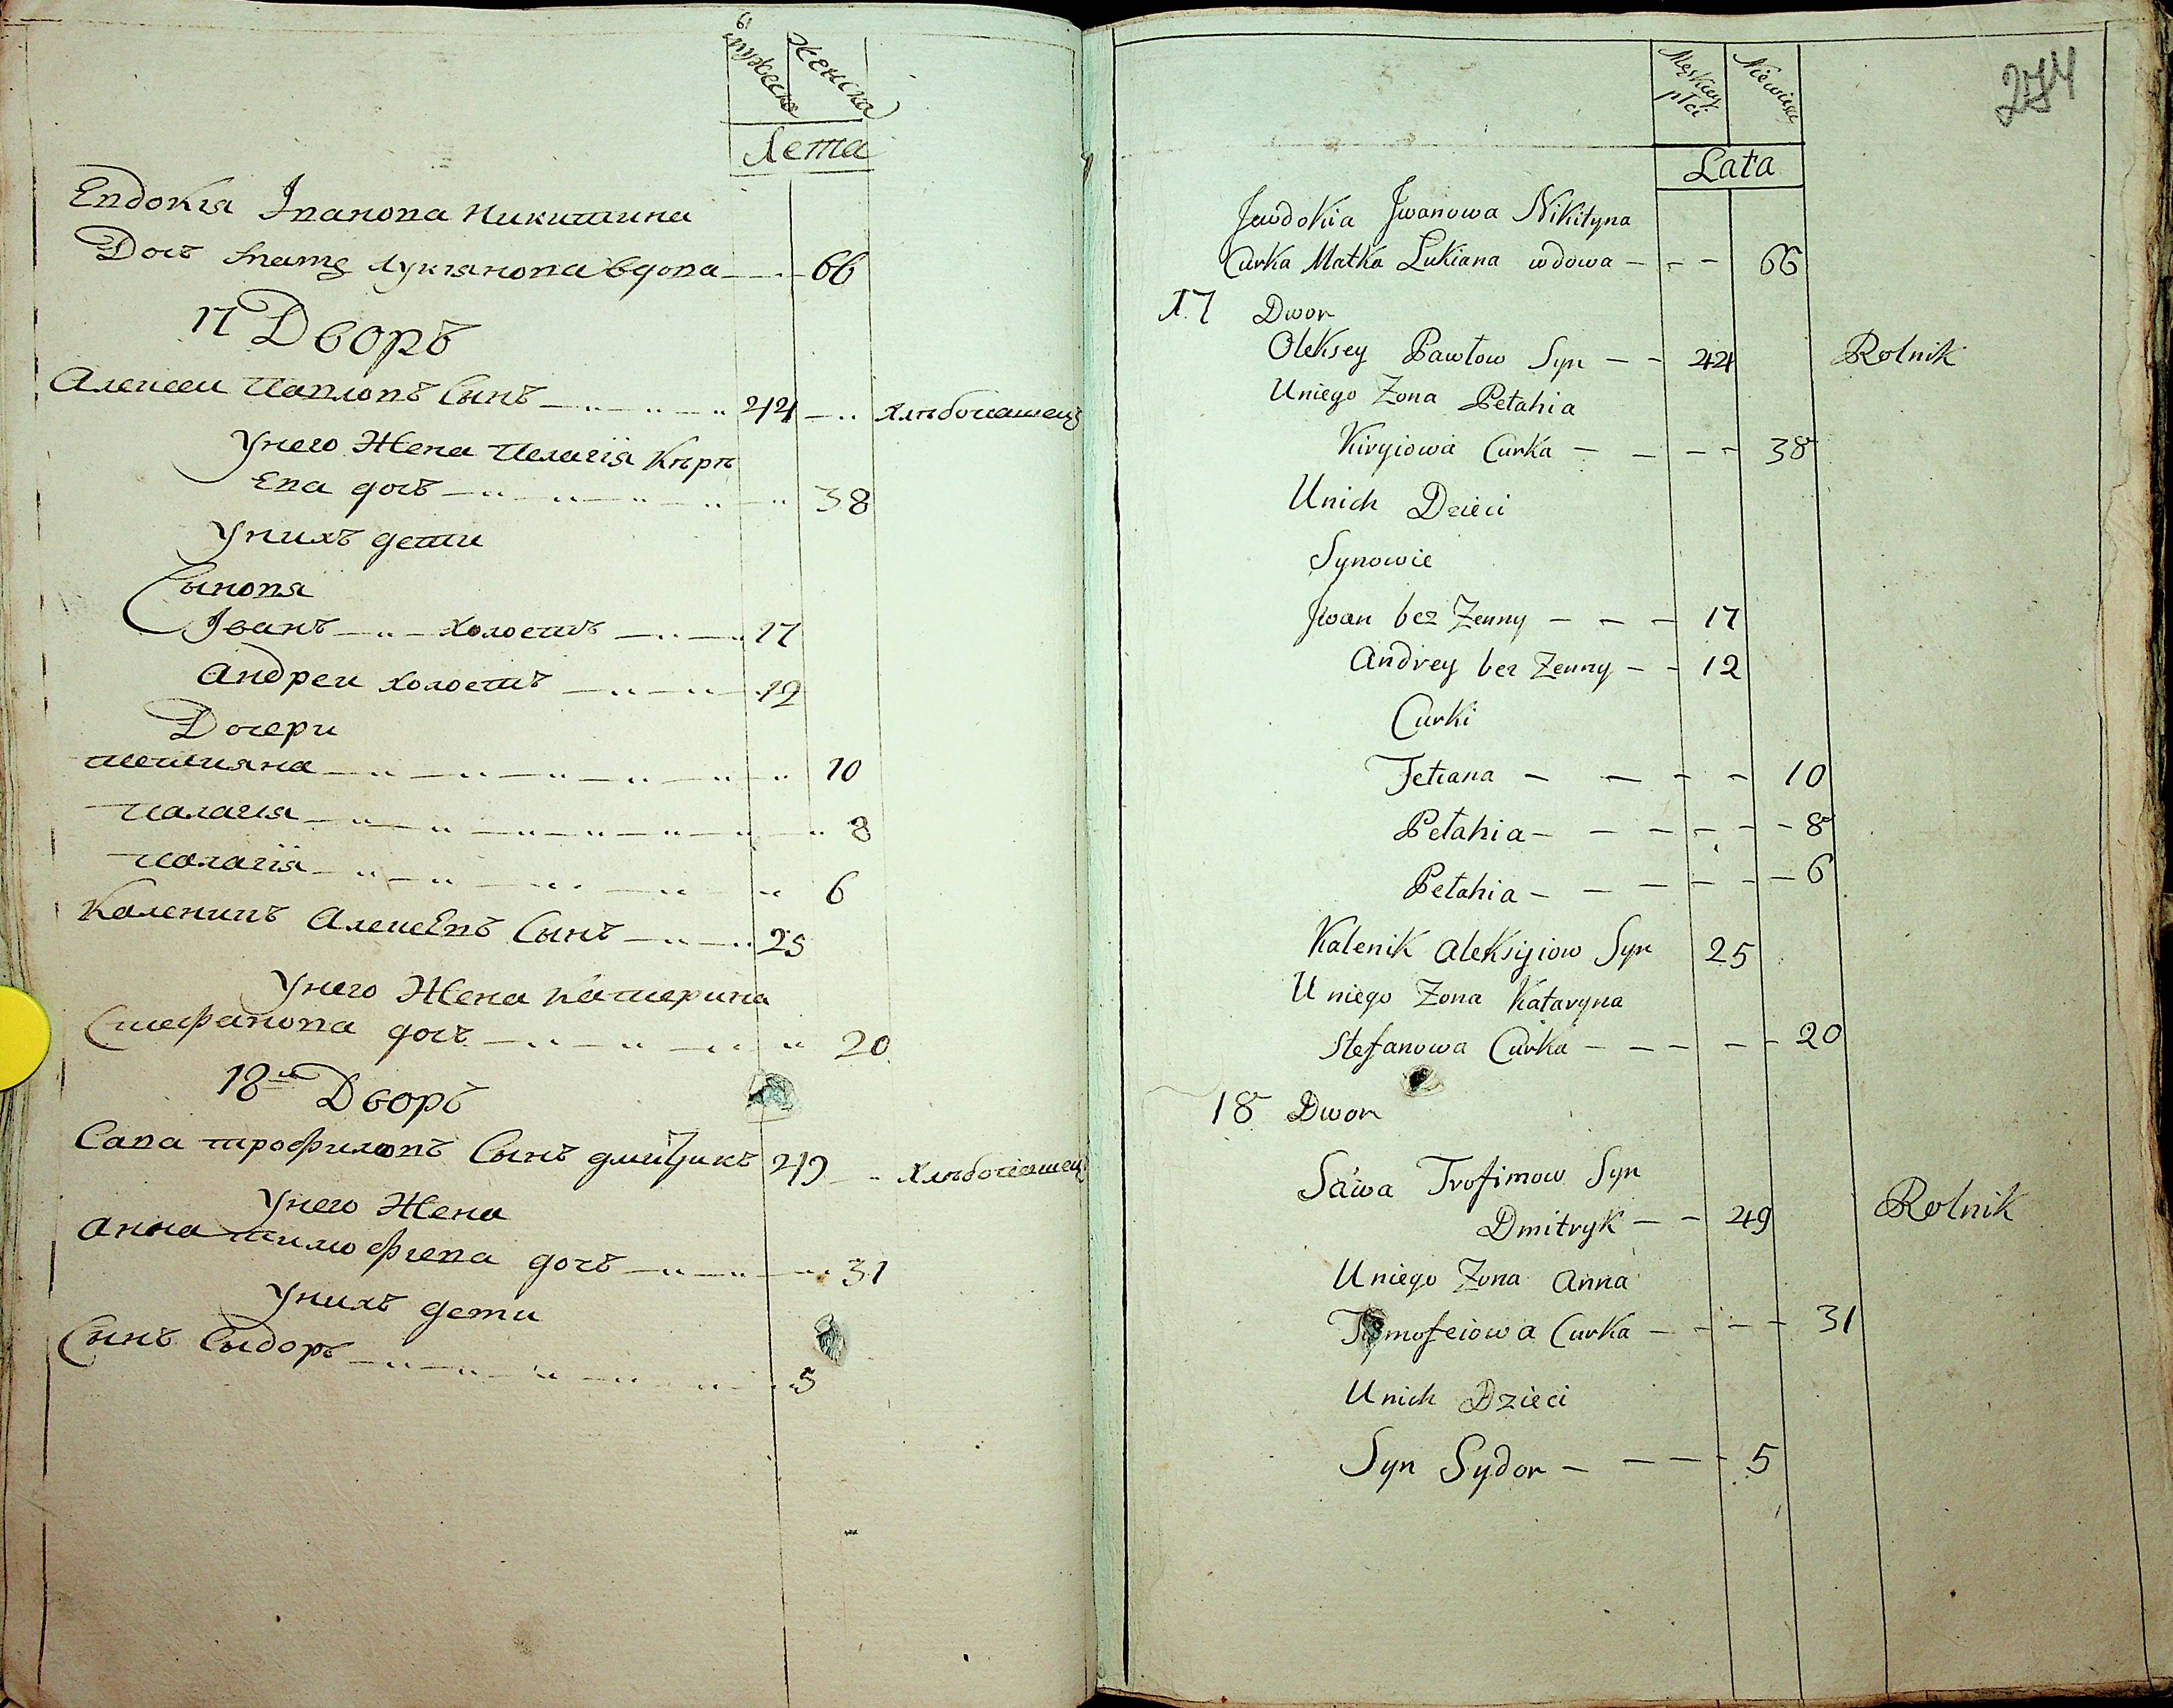 мужеска
Женска
Лета
Евдокия Iванова Никитина
Дочъ Мать Лукiянова вдова 66
17 Дворъ
Алексеи Павловъ Сынъ 44 Хлѣбопашецъ
Унего Жена Пелагiя Кирѣ
Ева дочъ 38
Унихъ дети
Сыновя
Iванъ холостъ 17
Андреи холостъ 12
Дочери
Тетияна 10
Палагiя 8
Палагiя 6
Каленикъ Алексеевъ Сынъ 25
Унего Жена Катерина
Стефанова дочъ 20
18й Дворъ
Сава Трофимовъ Сынъ дмитрикъ 49 Хлѣбопашецъ
Унего Жена
Анна Тимофиева дочъ 31
Унихъ дети
Сынъ Сыдоръ 5
274
Męskiey płci
Niewiescie
Lata
Jewdokia Jwanowa Nikityna
Curka Matka Lukiana wdowa - - - 66
17 Dwor
Oleksey Pawłow Syn - - 44 Rolnik
Uniego Zona Pełahia
Kiryiowa Curka - - - - 38
Unich Dzieci
Synowie
Jwan bez Zenny - - - 17
Andrey bez Zenny - - 12
Curki
Tetiana - - - - 10
Pełahia - - - - - - 8
Pełahia - - - - - - 6
Kalenik Aleksiyiow Syn 25
U niego Zona Kataryna
Stefanowa Curka - - - - - 20
18 Dwor
Sawa Trofimow Syn
Dmitryk - - 49 Rolnik
Uniego Zona Anna
Tymofeiowa Curka - - - - 31
Unich Dzieci
Syn Sydor - - - - 5